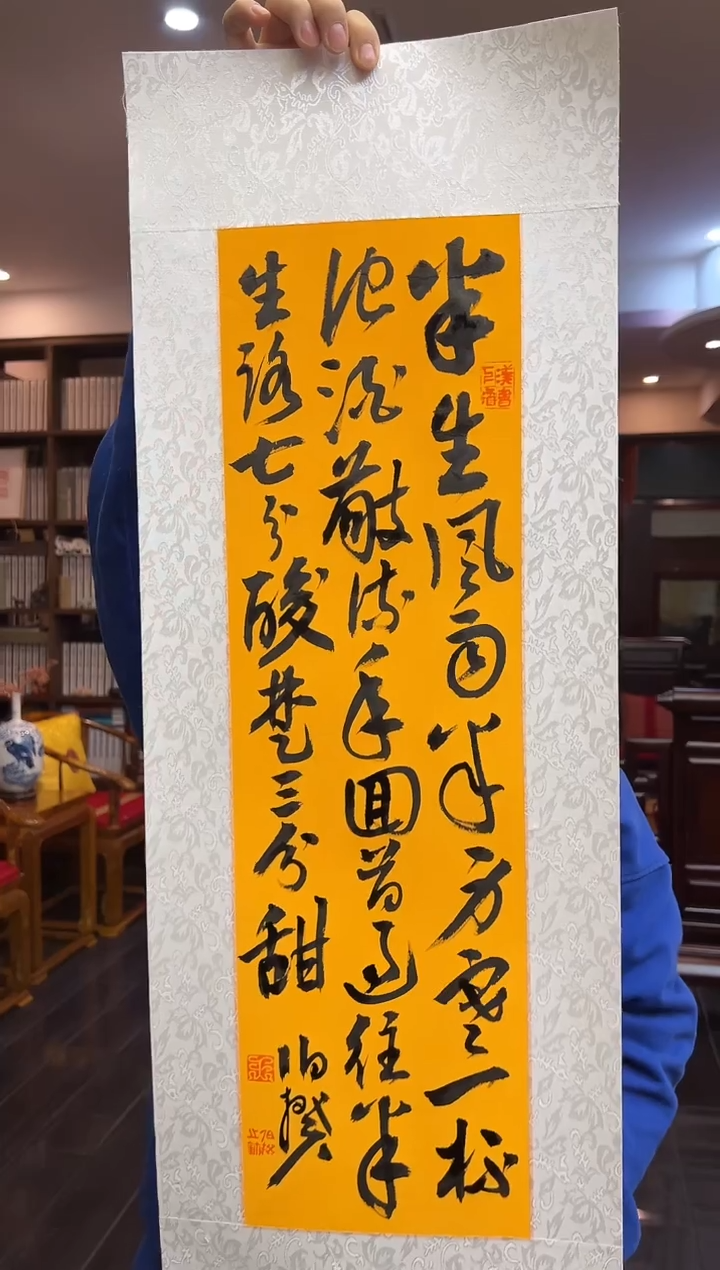 半生风雨半方寒一杯
浊酒敬流年回首过往半
生路七分酸楚三分甜